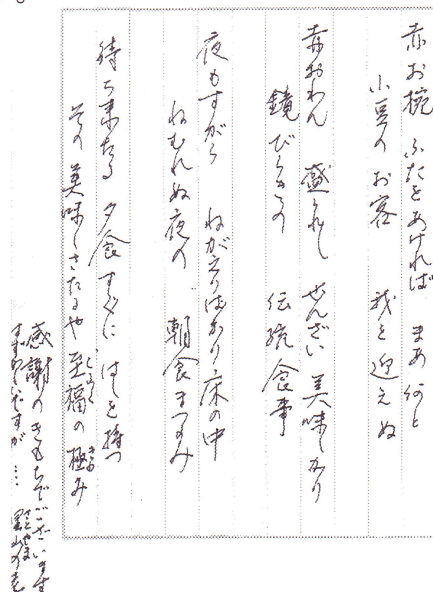 赤お椀 ふたをあければ まあ何と
小豆のお客 我を迎えぬ
赤おわん 盛られし ぜんざい 美味しかり
鏡びらきの 伝統食事
夜もすがら ねがえりばかり 床の中
ねむれぬ夜の 朝食まつのみ
待ち来たる 夕食すぐに はしを持つ
その美味しさたるや 至福の極み
感謝のきもちでございます
ですが…